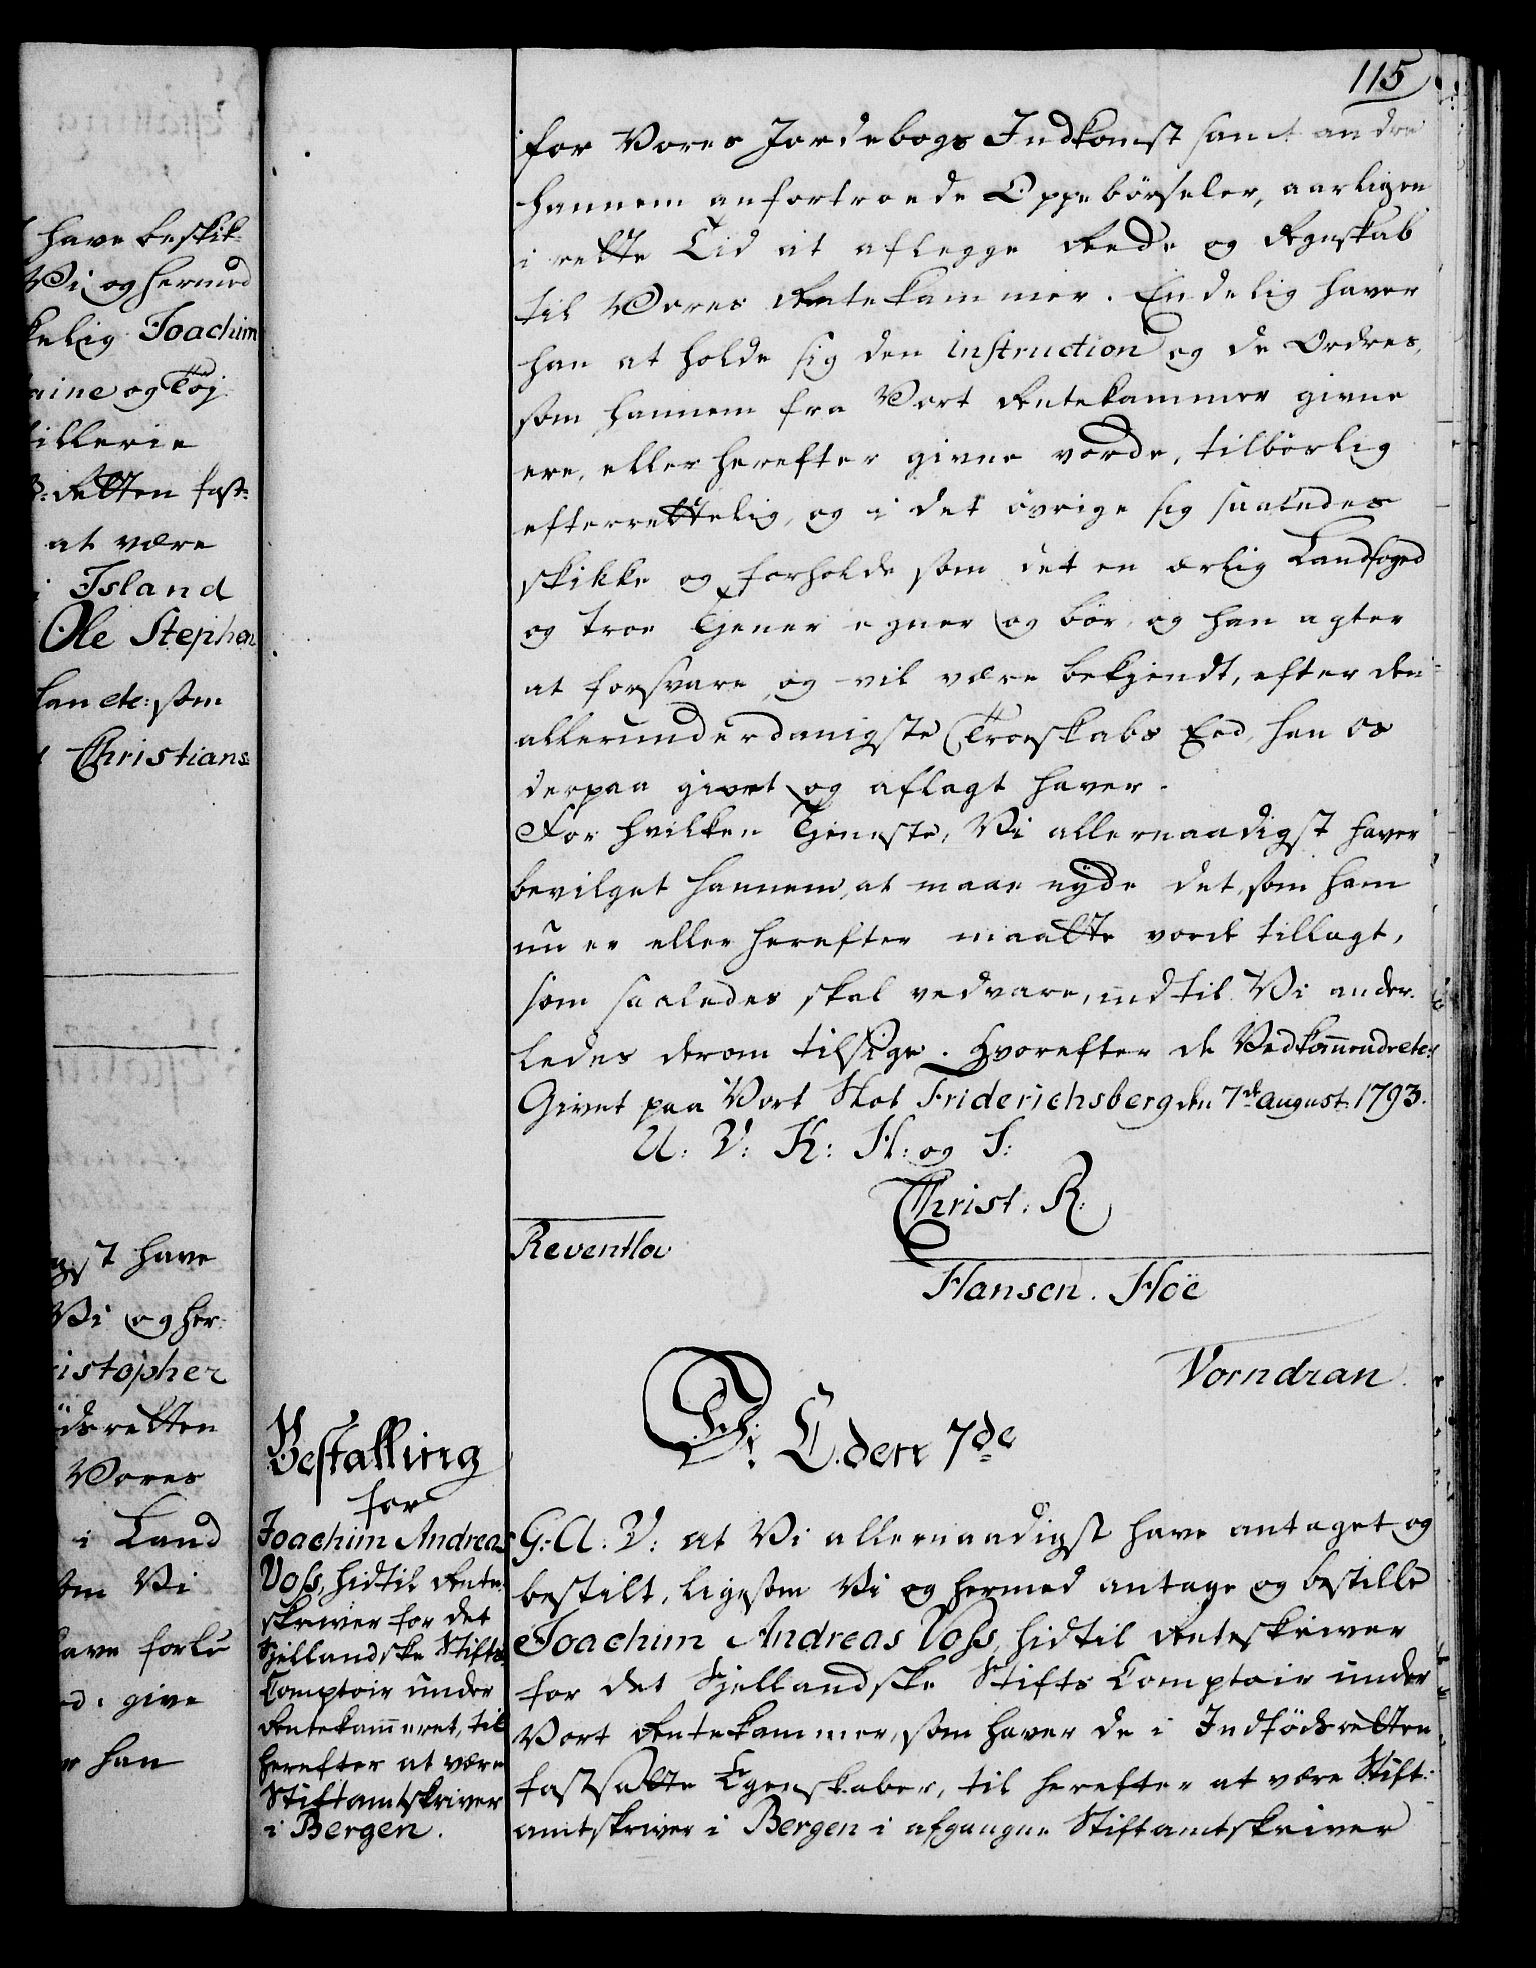 115
for Vores Jordebogs Indkomst samt andre
hannem anfortroede Oppebörseler, aarligen
i rette Tid at aflegge Rede og Regnskab
til Vores Rentekammer. Endelig haver
han at holde sig den instruction og de Ordres,
som hannem fra Vort Rentekammer givne
ere, eller herefter givne vorde, tilbörlig
efterrettelig, og i det övrige sig saaledes
skikke og forholde som det en ærlig Landfoged
og troe Tjener egner og bör, og han agter
at forsvare og vil være bekjendt, efter den
allerunderdanigste Troeskabs Eed, han os
derpaa givet og aflagt haver.
For hvilken Tjeneste, Vi allernaadigst haver
bevilget hannem, at maae nyde det, som ham
nu er eller herefter maatte vorde tillagt,
som saaledes skal vedvare, indtil Vi ander-
ledes derom tilsige. Hvorefter de Vedkom̄ende etc:
Givet paa Vort Slot Friderichsberg den 7de august 1793.
U: V: K: H: og S:
Christ. R.
Reventlow
Hansen. Höe
Vorndran.
D: E. den 7de
Bestalling
for
Joachim Andreas
Voss, hidtil Rente-
skriver for det
Sjellandske Stifts
Comptoir under
Rentekam̄eret, til
herefter at være
Stiftamtskriver
i Bergen.
G: A: V: at Vi allernaadigst have antaget og
bestilt, ligesom Vi og hermed antage og bestille
Joachim Andreas Voss, hidtil Renteskriver
for det Sjellandske Stifts Comptoir under
Vort Rentekammer, som haver de i Indfödsretten
fastsatte Egenskaber, til herefter at være Stift-
amtskriver i Bergen i afgangne Stiftamtskriver
have beskik-
Vi og hermed
kelig Joachim
aine og Töj
tillerie
Retten fast-
at være
i Island
Ole Stephen
lan etc: som
Christians
gst have
Vi og her-
istopher
dsretten
Vores
i Land
om Vi
have forlu
give
han